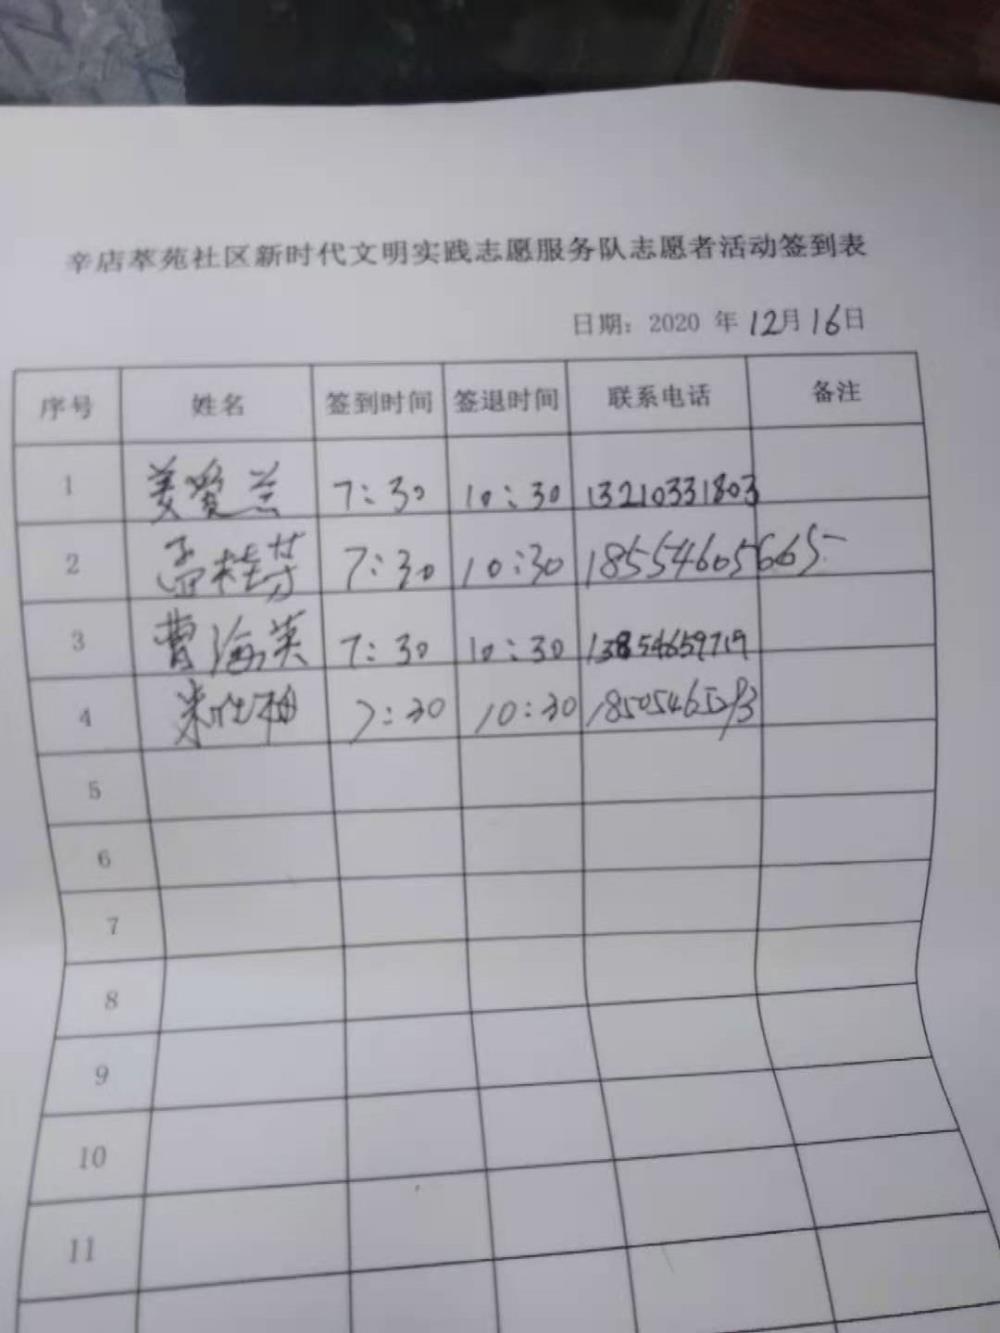 辛店萃苑社区新时代文明实践志愿服务队志愿者活动签到表
日期：2020 年 12月16日
序号 姓名 签到时间 签退时间 联系电话 备注
1 姜爱兰 7:30 10:30 13210331803
2 孟桂芬 7:30 10:30 18554605665
3 曹海英 7:30 10:30 13854659719
4 7:30 10:30
5
6
7
8
9
10
11